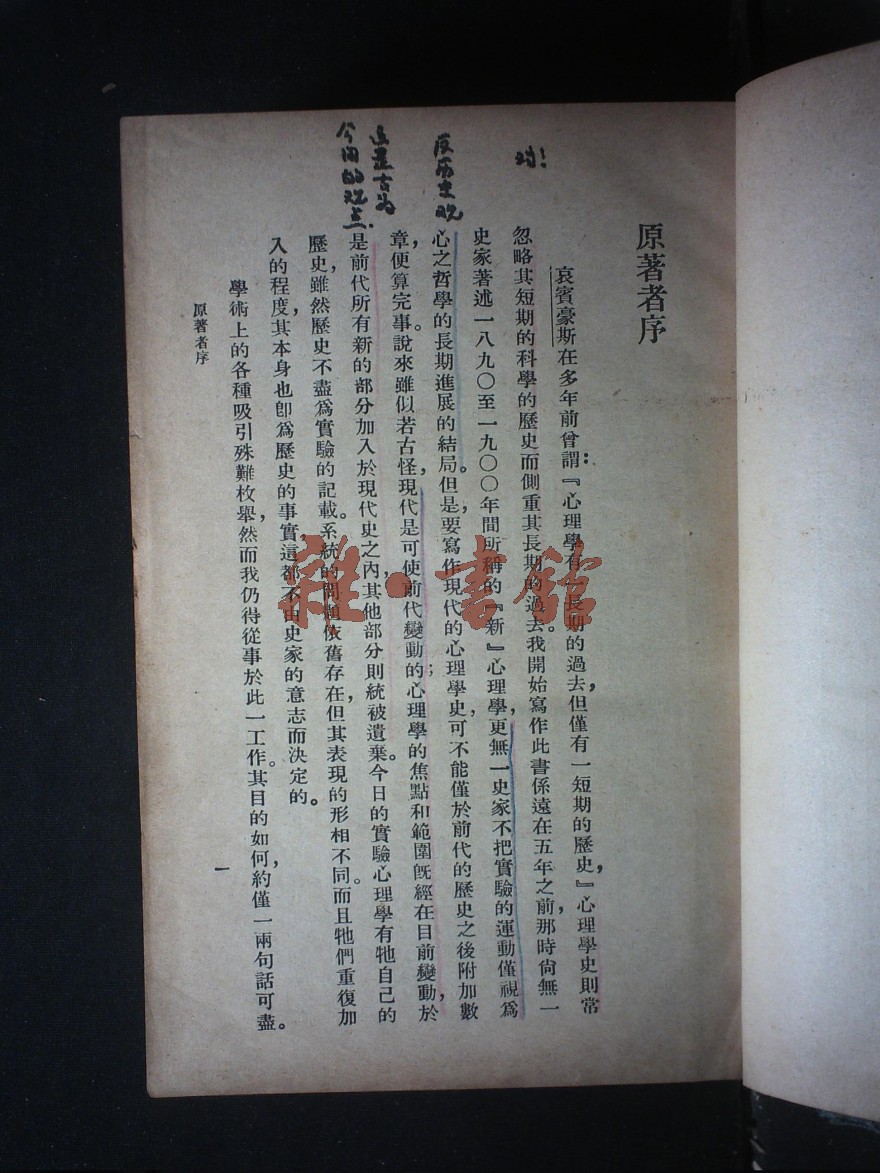 原著者序
哀賓豪斯在多年前曾謂：『心理學有一長期的過去，但僅有一短期的歷史，』心理學史則常
忽略其短期的科學的歷史而側重其長期的過去。我開始寫作此書係遠在五年之前，那時尙無一
史家著述一八九〇至一九〇〇年間所稱的『新』心理學，更無一史家不把實驗的運動僅視爲
心之哲學的長期進展的結局。但是，要寫作現代的心理學史，可不能僅於前代的歷史之後附加數
章，便算完事。說來雖似若古怪，現代是可使前代變動的；心理學的焦點和範圍旣經在目前變動，於
是前代所有新的部分加入於現代史之內，其他部分則統被遺棄。今日的實驗心理學有牠自己的
歷史，雖然歷史不盡爲實驗的記載。系統的問題依舊存在，但其表現的形相不同。而且牠們重復加
入的程度，其本身也卽爲歷史的事實，這都不由史家的意志而決定的。
學術上的各種吸引殊難枚舉，然而我仍得從事於此一工作。其目的如何，約僅一兩句話可盡。
原著者序
一
对！
反历史观
這是古为
今用的观点.
雜·書館